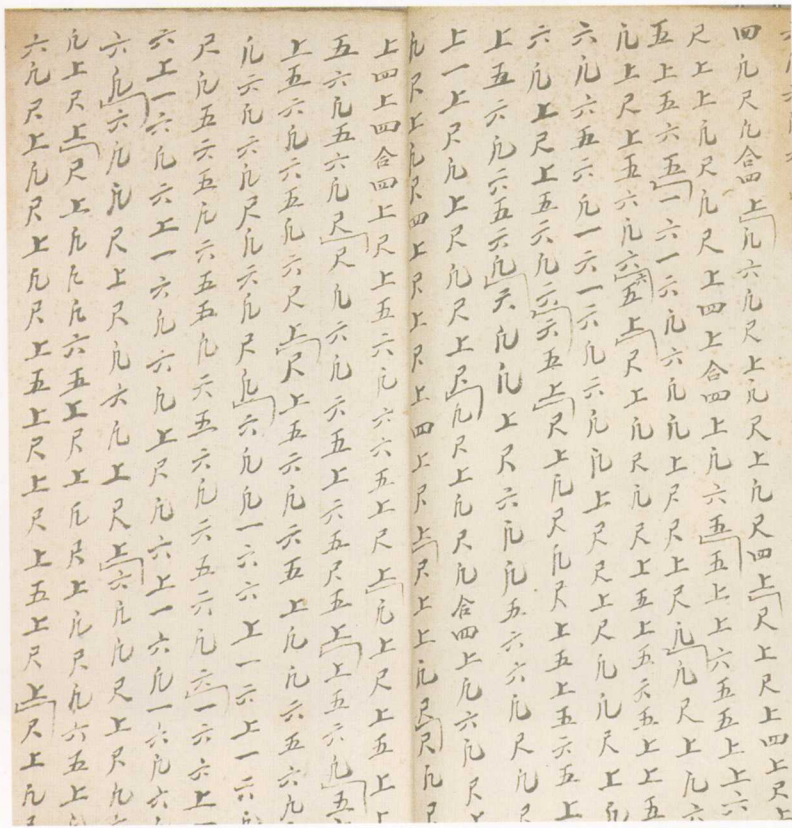 四凡尺凡合四上凡六凡尺上凡尺上凡尺四上尺上尺上四上尺上
尺上上凡尺凡尺上四上合四上凡六五五上上六五五上上六
五上五六五一六一六凡六凡凡上尺尺上尺凡凡尺上凡六
凡上尺上五六凡六五上尺上凡尺凡尺上五上五六五上上五
六凡六五六凡一六一六凡六凡凡上尺尺上尺凡凡尺上凡
六凡上尺上五六凡六六五上尺上凡尺凡尺上五上五六五上
上五六凡六五六凡六凡凡上尺六凡凡五六六凡尺凡尺
上一上尺凡上尺凡尺上尺凡尺上凡尺凡合四上凡六凡尺上
凡尺上凡尺四上尺上尺上四上尺上尺上上凡尺尺凡尺
上四上四合四上尺上五六凡六六五上尺上凡上尺上五上上
五六凡五六凡尺尺凡六凡六五上六五尺五上上五六凡五
上五六凡六五凡六尺上尺上五六凡六五上凡凡六五六凡
凡六凡六凡尺凡六凡尺凡六凡凡一六六上一六上一六凡
尺凡五六五凡六五五凡六五六凡六五六凡六一六六上一
六上一六凡六上一六凡六凡上尺凡六上一六凡一六凡六
六凡六凡凡尺上尺凡六凡上尺上六凡凡尺上尺凡六
凡上尺上尺上凡凡凡六五上尺上凡尺上凡尺凡六五上凡
六凡尺上凡尺上凡尺上五上尺上尺上五上尺上尺上凡尺